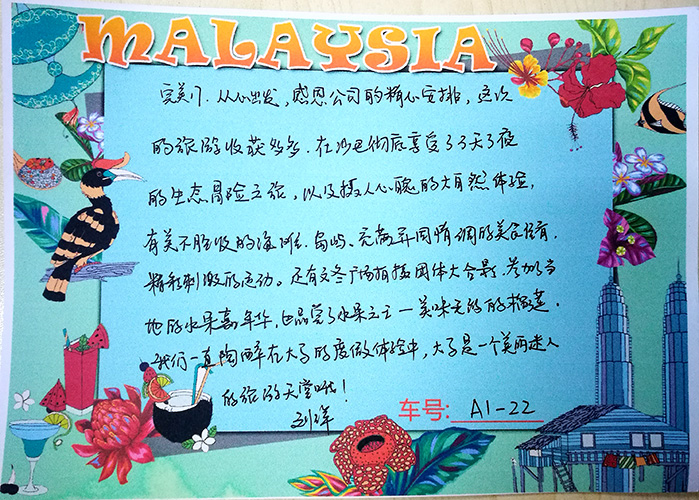 MALAYSIA
完美个、从心出发，感恩公司的精心安排，这次
的旅游收获多多．在沙巴彻底享受了3天3夜
的生态冒险之旅，以及摄人心魄的大自然体验，
有美不胜收的海滩、岛屿、充满异国情调的美食
精彩刺激的运动。还有文冬广场拍摄团体大合影．参加当
地的水果嘉年华，也品尝了水果之王—美味无比的榴莲．
我们一直陶醉在大马的度假体验中，大马是一个美丽迷人
的旅游天堂哦！
刘萍
车号: A1-22